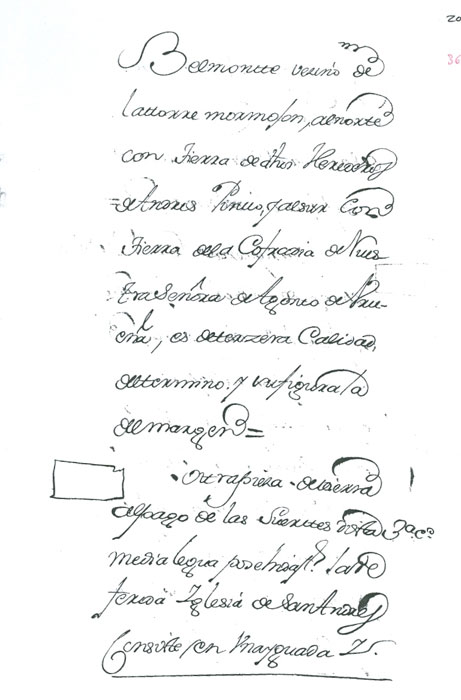 20
36
Belmontte vezino de
lattorre mormojon, alnorte
con tierra delos Herederos
de Andres Pinico, yalsur con
tierra dela Cofradia de Nues
tra Señora de
es deterzera Calidad,
determino. y sufigura la
de margen =
Ottra pieza de tierra
alpago de las fuentes dista
media legua poco
Iglesia de San Andres
Consiste en Una yguada